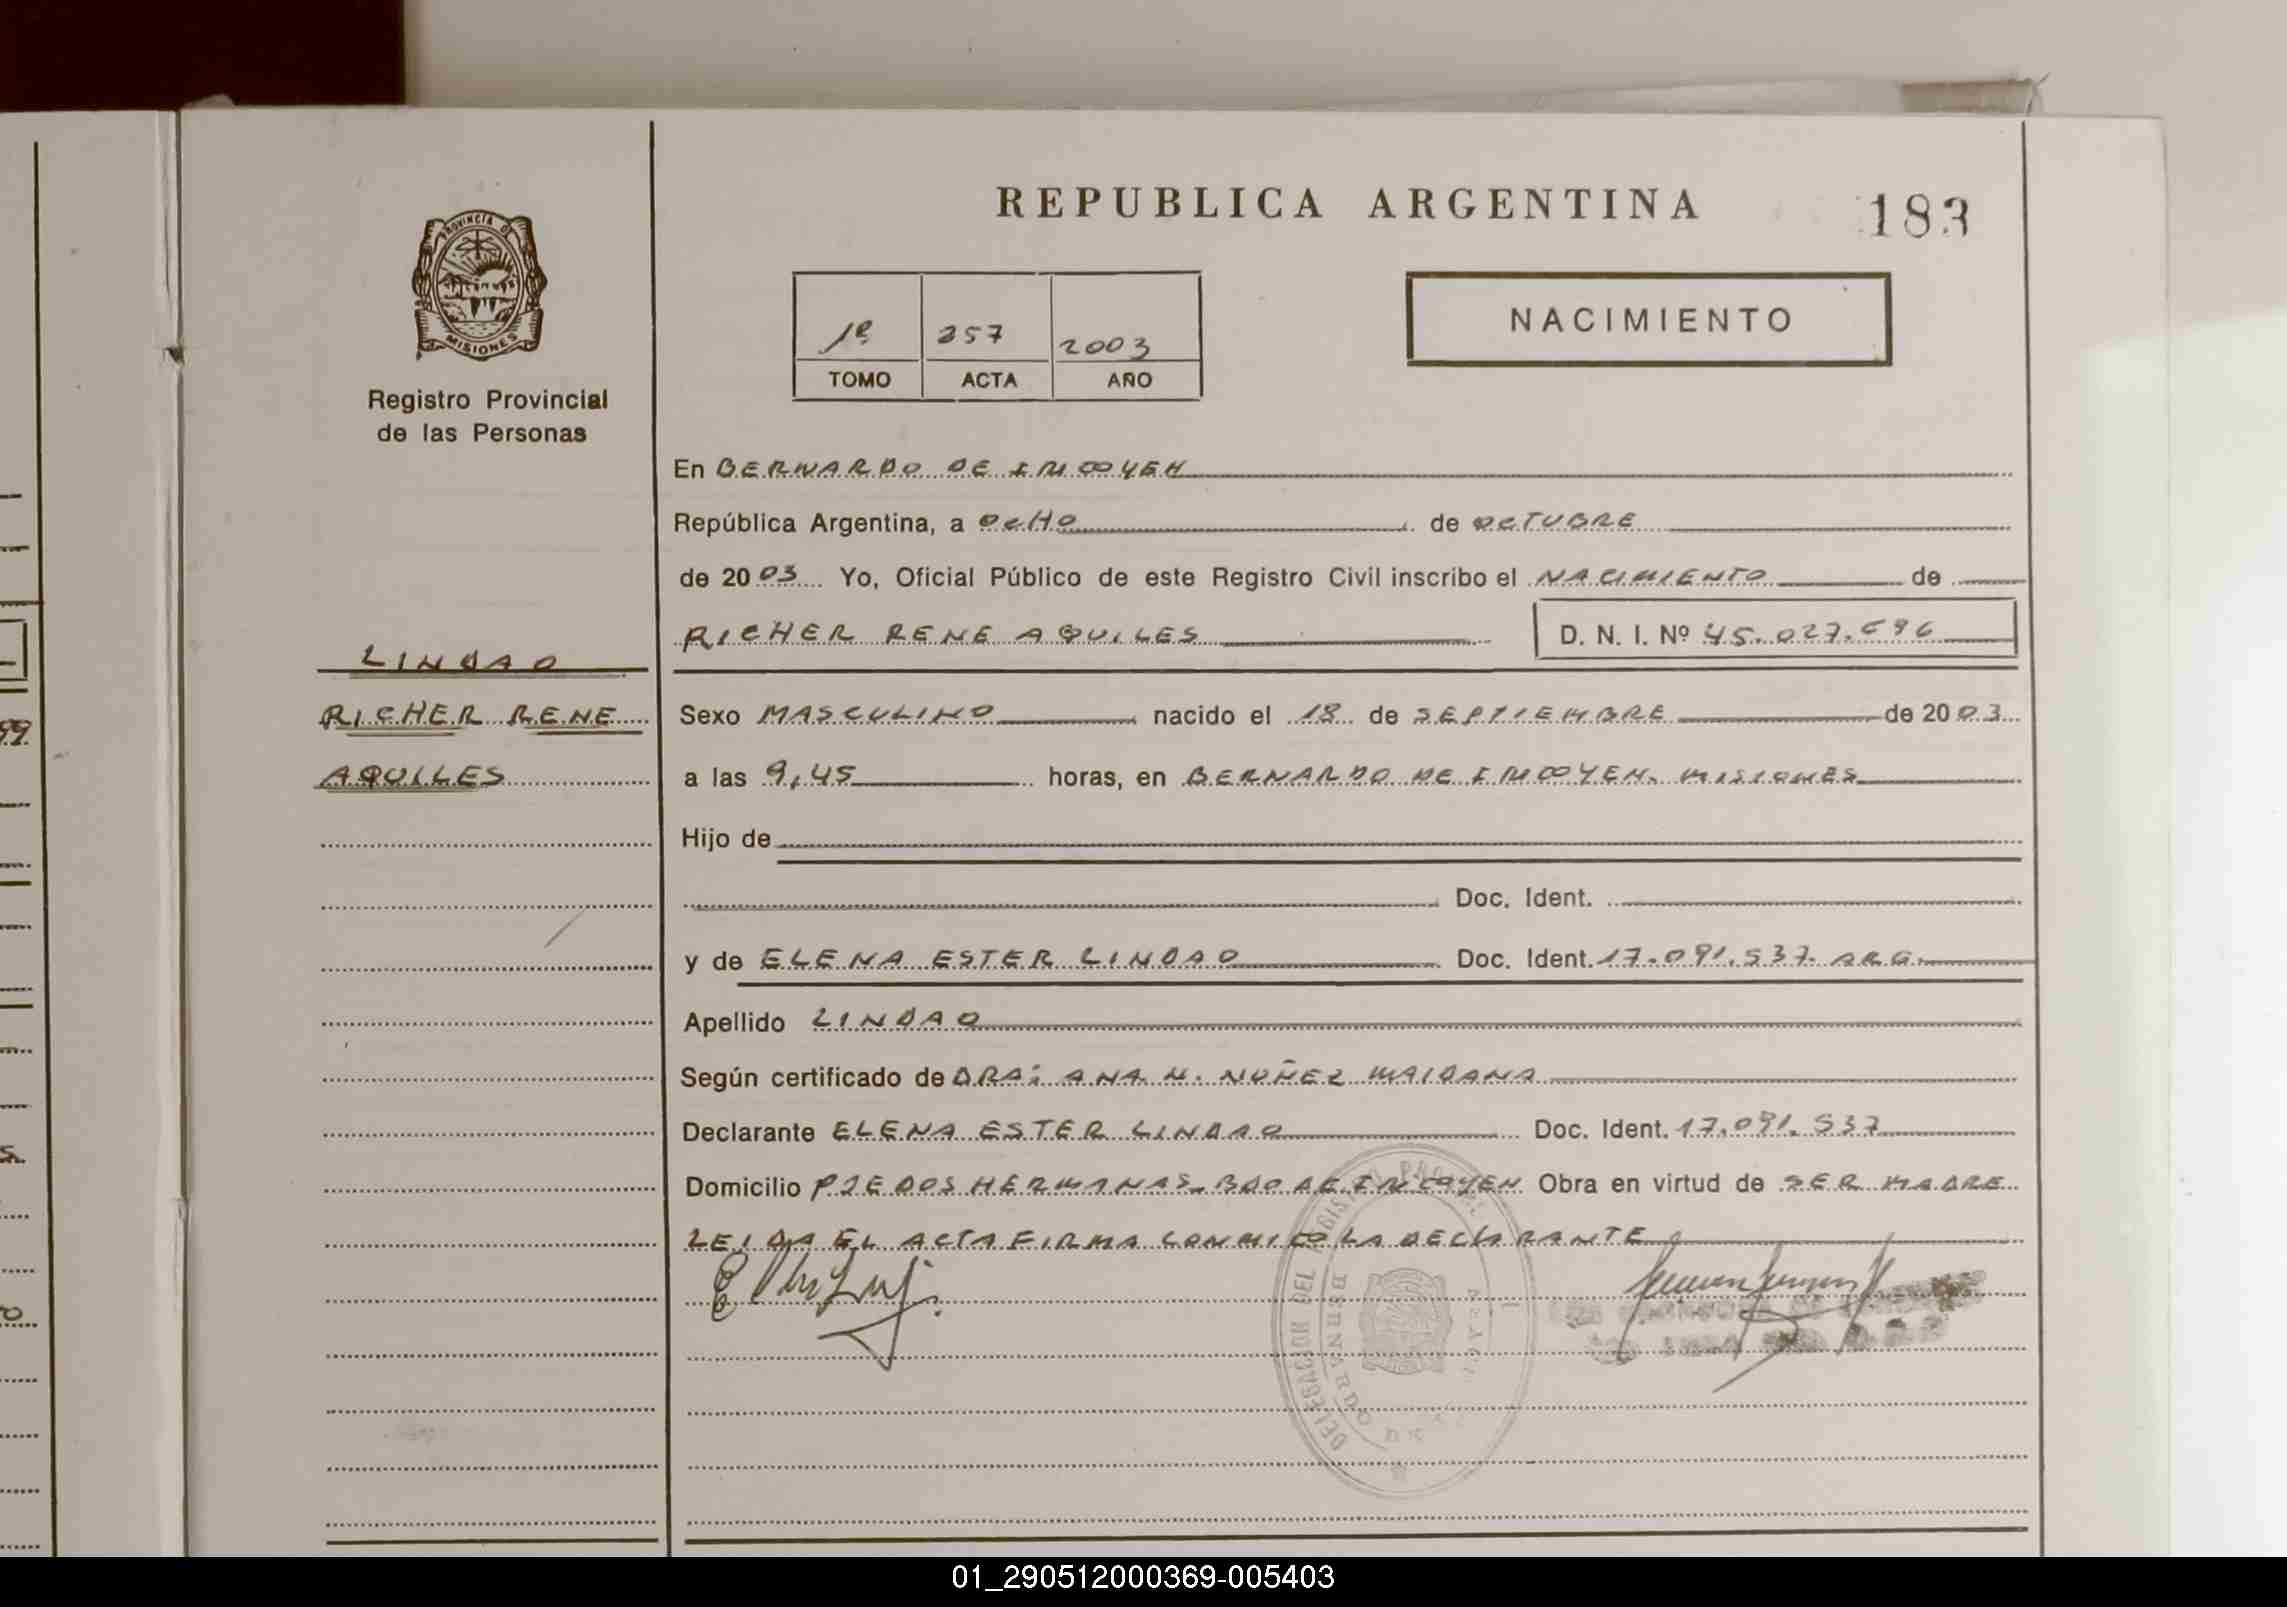 REPUBLICA ARGENTINA
183
PROVINCIA DE
MISIONES
Registro Provincial
de las Personas
1º 257 2003
TOMO ACTA AÑO
NACIMIENTO
En BERNARDO DE IRIGOYEN
República Argentina, a OCHO de OCTUBRE
de 20 03 Yo, Oficial Público de este Registro Civil inscribo el NACIMIENTO de
RICHER RENE AQUILES D. N. I. Nº 45.027.696
LINDAO
RICHER RENE
AQUILES
Sexo MASCULINO nacido el 18 de SEPTIEMBRE de 20 03
a las 9,45 horas, en BERNARDO DE IRIGOYEN. MISIONES
Hijo de
Doc. Ident.
y de ELENA ESTER LINDAO Doc. Ident. 17.091.537. ARG.
Apellido LINDAO
Según certificado de DRA: ANA. N. NUÑEZ MAIDANA
Declarante ELENA ESTER LINDAO Doc. Ident. 17.091.537
Domicilio PJE DOS HERMANAS. BDO DE IRIGOYEN Obra en virtud de SER MADRE
LEIDA EL ACTA FIRMA CONMIGO LA DECLARANTE
DELEGACION DEL REGISTRO
BERNARDO
01_290512000369-005403